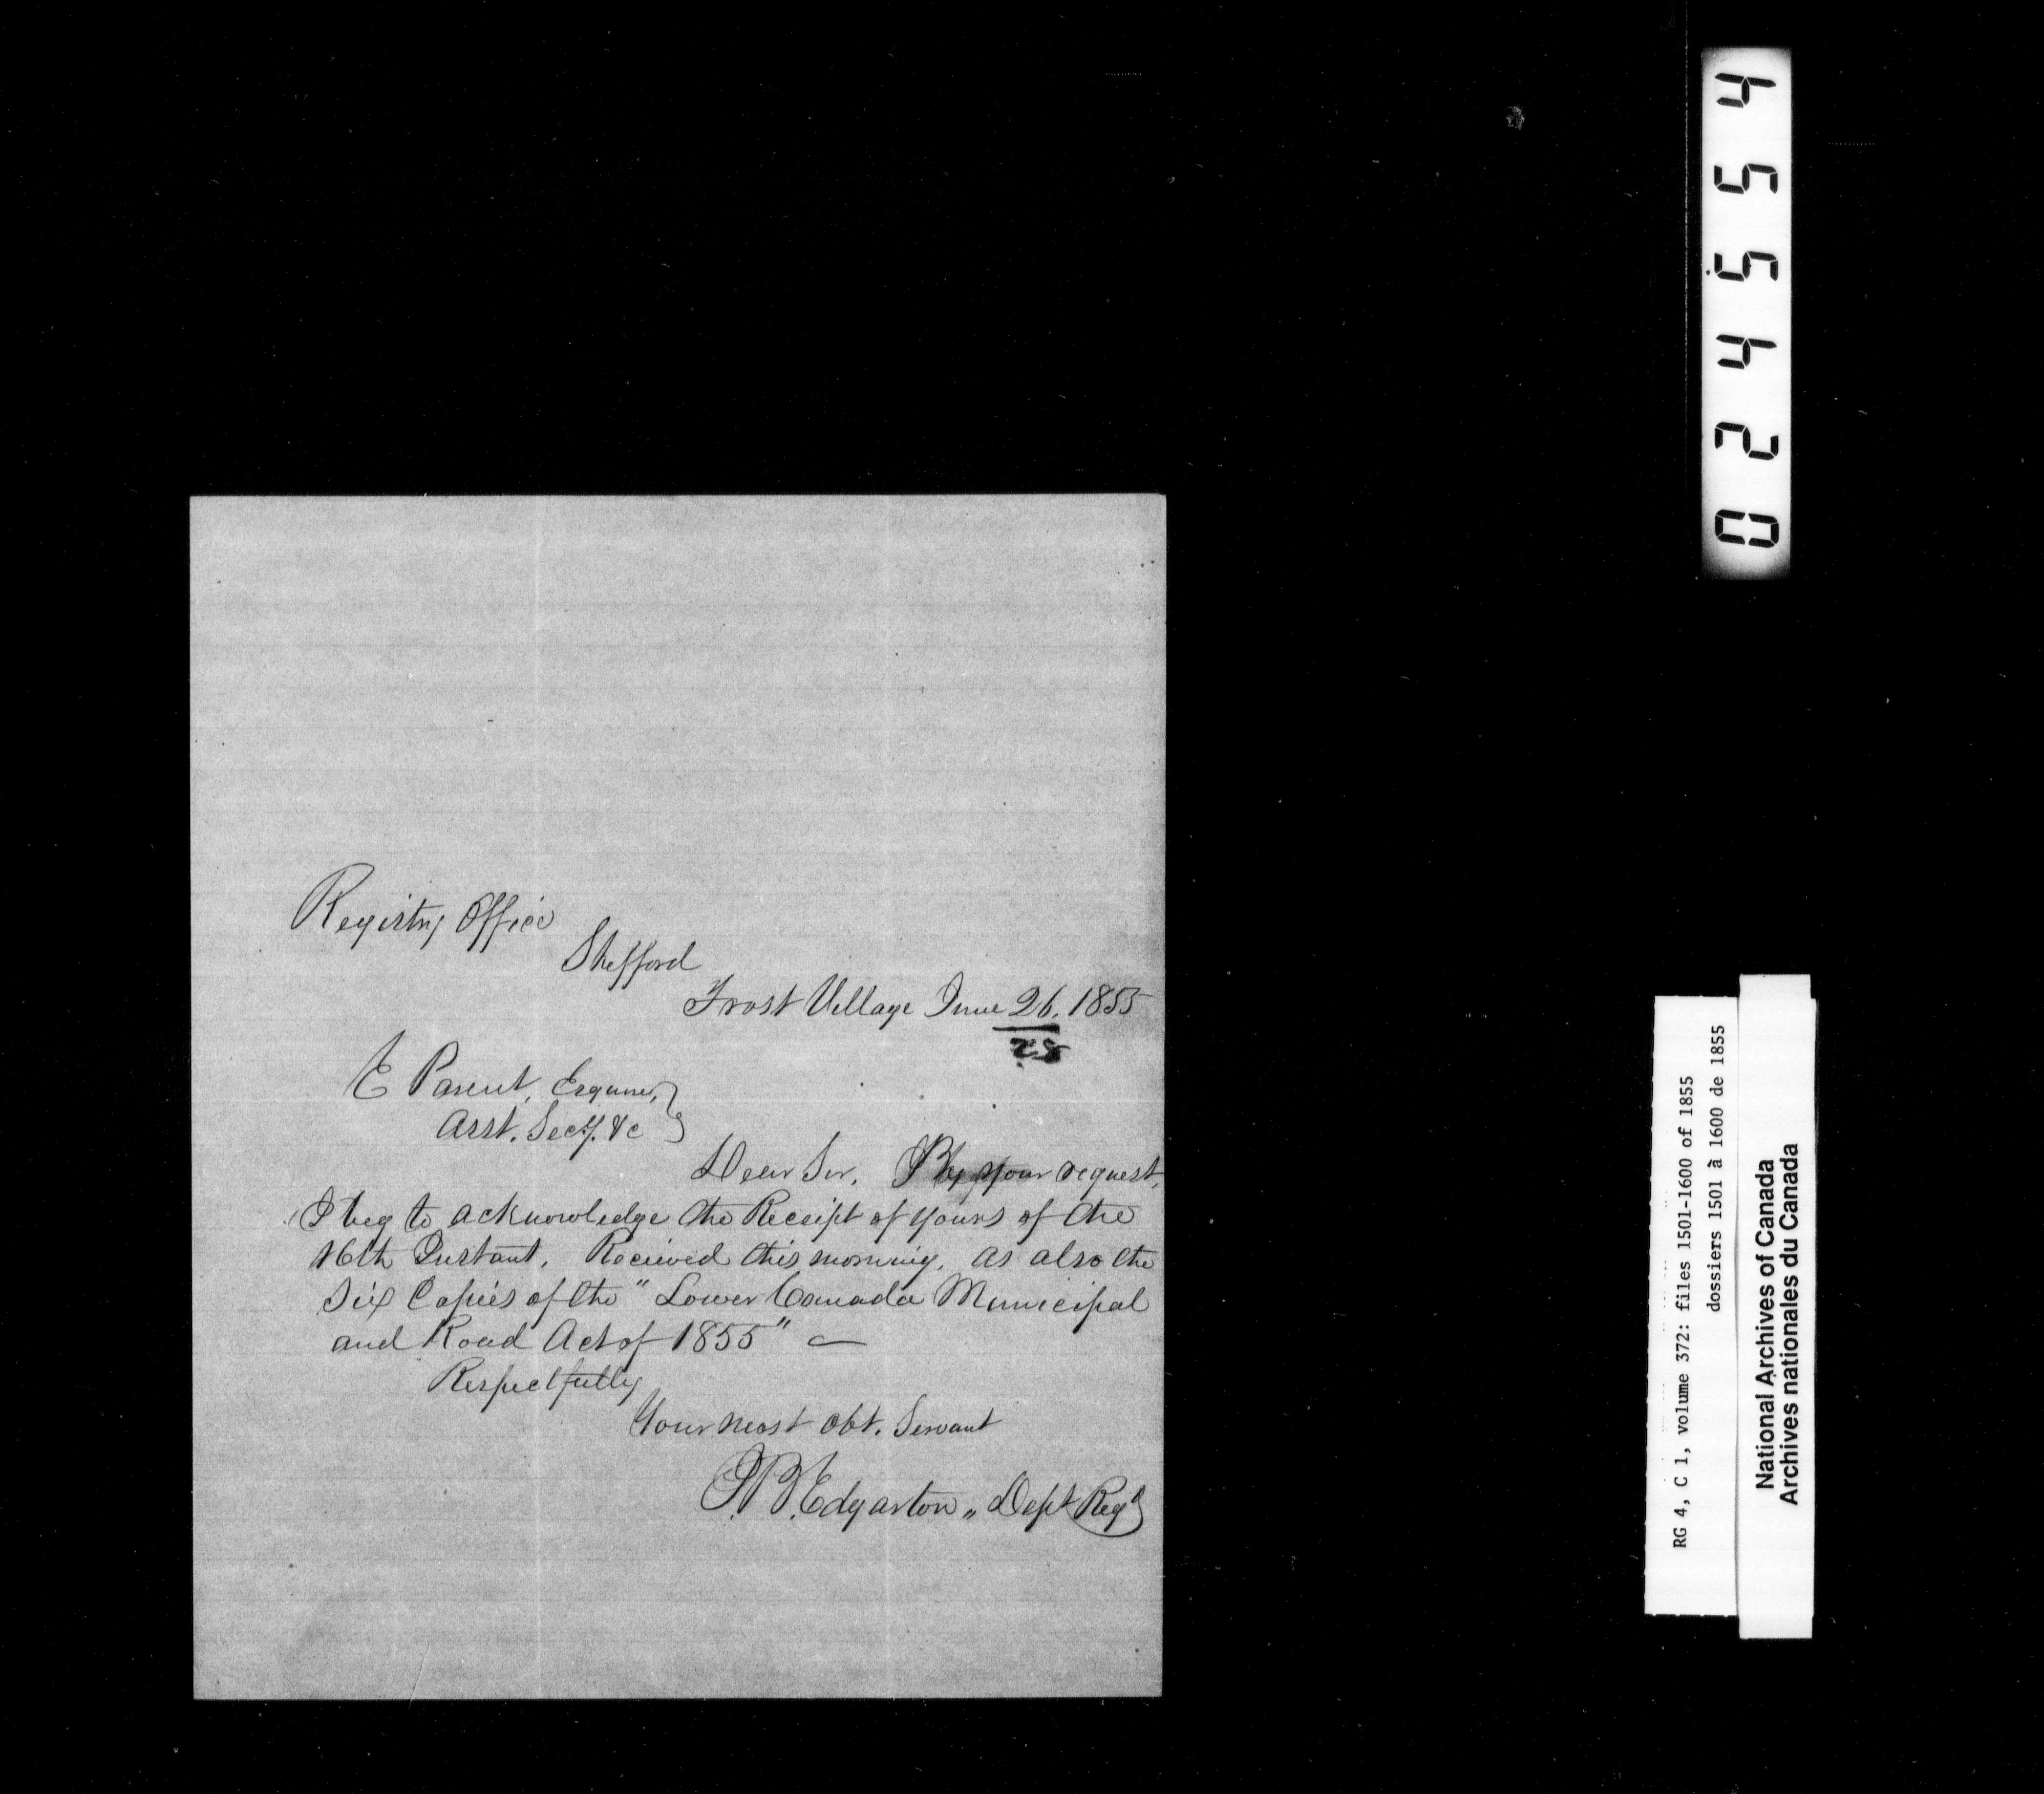 Registry Office
Shefford
Frost Village June 26, 1855
28
E Parent, Esquire,
Asst. Secy. &c
Dear Sir, By your request,
I beg to acknowledge the Receipt of yours of the
16th Instant, Recieved this morning, as also the
Six Copies of the "Lower Canada Municipal
and Road Act of 1855" —
Respectfully
Your most Obt. Servant
P.B. Edgarton,, Dept Regr
024554
RG 4, C 1, volume 372: files 1501-1600 of 1855
dossiers 1501 à 1600 de 1855
National Archives of Canada
Archives nationales du Canada